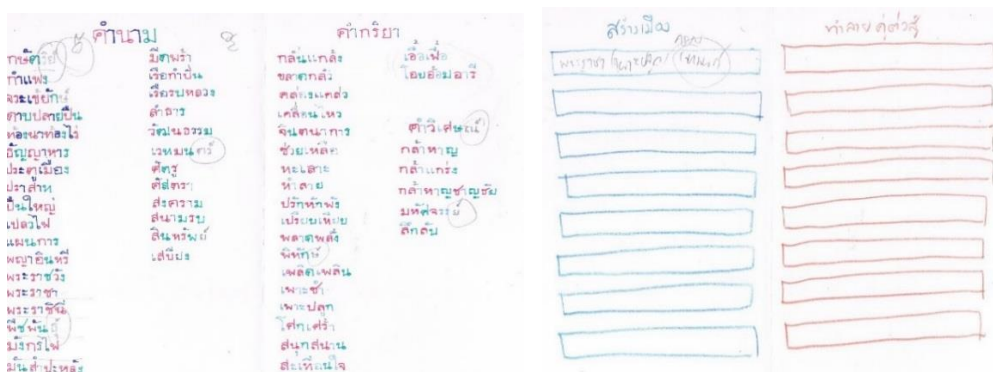 คำนาม
กษัตริย์
กำแพง
จระเข้ยักษ์
ดาบปลายปืน
ท้องนาท้องไร่
ธัญญาหาร
ประตูเมือง
ปราสาท
ปืนใหญ่
เปลวไฟ
แผนการ
พญาอินทรี
พระราชวัง
พระราชา
พระราชินี
พืชพันธุ์
มังกรไฟ
มันสำปะหลัง
มีดพร้า
เรือกำปั่น
เรือรบหลวง
ลำธาร
วัฒนธรรม
เวทมนตร์
ศัตรู
ศัสตรา
สงคราม
สนามรบ
สินทรัพย์
เสบียง
คำกริยา
กลั่นแกล้ง
ขลาดกลัว
คล่องแคล่ว
เคลื่อนไหว
จินตนาการ
ช่วยเหลือ
ทะเลาะ
ทำลาย
ปรักหักพัง
เปรียบเทียบ
พลาดพลั้ง
พิทักษ์
เพลิดเพลิน
เพาะชำ
เพาะปลูก
โศกเศร้า
สนุกสนาน
สะเทือนใจ
เอื้อเฟื้อ
โอบอ้อมอารี
คำวิเศษณ์
กล้าหาญ
กล้าแกร่ง
กล้าหาญชาญชัย
มหัศจรรย์
ลึกลับ
สร้างเมือง
พระราชา / เพาะปลูก /
ทำลายคู่ต่อสู้